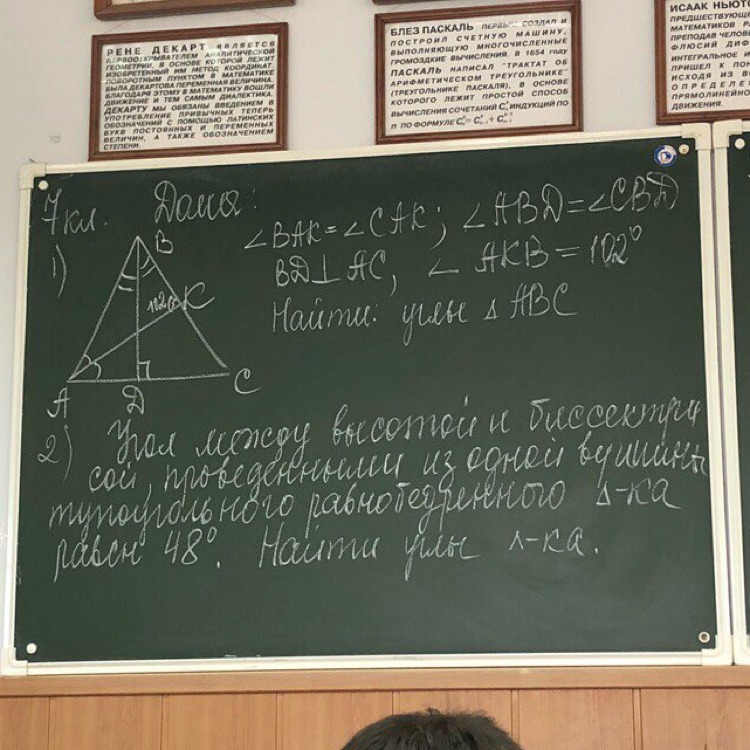 РЕНЕ ДЕКАРТ ЯВЛЯЕТСЯ
ПЕРВООТКРЫВАТЕЛЕМ АНАЛИТИЧЕСКОЙ
ГЕОМЕТРИИ, В ОСНОВЕ КОТОРОЙ ЛЕЖИТ
ИЗОБРЕТЕННЫЙ ИМ МЕТОД КООРДИНАТ.
ПОВОРОТНЫМ ПУНКТОМ В МАТЕМАТИКЕ
БЫЛА ДЕКАРТОВА ПЕРЕМЕННАЯ ВЕЛИЧИНА.
БЛАГОДАРЯ ЭТОМУ В МАТЕМАТИКУ ВОШЛИ
ДВИЖЕНИЕ И ТЕМ САМЫМ ДИАЛЕКТИКА.
ДЕКАРТУ МЫ ОБЯЗАНЫ ВВЕДЕНИЕМ В
УПОТРЕБЛЕНИЕ ПРИВЫЧНЫХ ТЕПЕРЬ
ОБОЗНАЧЕНИЙ С ПОМОЩЬЮ ЛАТИНСКИХ
БУКВ ПОСТОЯННЫХ И ПЕРЕМЕННЫХ
ВЕЛИЧИН, А ТАКЖЕ ОБОЗНАЧЕНИЕМ
СТЕПЕНИ.
БЛЕЗ ПАСКАЛЬ ПЕРВЫМ СОЗДАЛ И
ПОСТРОИЛ СЧЕТНУЮ МАШИНУ,
ВЫПОЛНЯЮЩУЮ МНОГОЧИСЛЕННЫЕ
ГРОМОЗДКИЕ ВЫЧИСЛЕНИЯ. В 1654 году
ПАСКАЛЬ НАПИСАЛ "ТРАКТАТ ОБ
АРИФМЕТИЧЕСКОМ ТРЕУГОЛЬНИКЕ"
(ТРЕУГОЛЬНИКЕ ПАСКАЛЯ), В ОСНОВЕ
КОТОРОГО ЛЕЖИТ ПРОСТОЙ СПОСОБ
ВЫЧИСЛЕНИЯ СОЧЕТАНИЙ ИНДУКЦИЙ ПО
n ПО ФОРМУЛЕ
ИСААК НЬЮТО
ПРЕДШЕСТВУЮЩ
МАТЕМАТИКОВ РА
ПРЕПОДАВ ЧЕЛОВЕ
ФЛЮСИЙ ДИФ
ИНТЕГРАЛЬНОЕ И
ПРИШЕЛ К ПОН
ИСХОДЯ ИЗ В
ОПРЕДЕЛЕ
ПРЯМОЛИНЕЙНО
ДВИЖЕНИЯ.
7 кл. Даша:
1) ∠BAK = ∠CAK; ∠ABD = ∠CBD
BD ⊥ AC, ∠ AKB = 102°
Найти: углы △ ABC
B
102°
K
A
D
C
2) Угол между высотой и биссектри
сой, проведенными из одной вершины
тупоугольного равнобедренного △-ка
равен 48°. Найти углы △-ка.